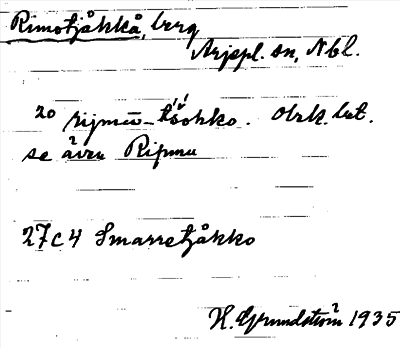 Rimotjåkkå, berg
Arjepl. sn, Nbl.
20 rijmū- Obrk. lut.
se även Ripmu
27C4 Smarretjåkko
H. Grundström 1935